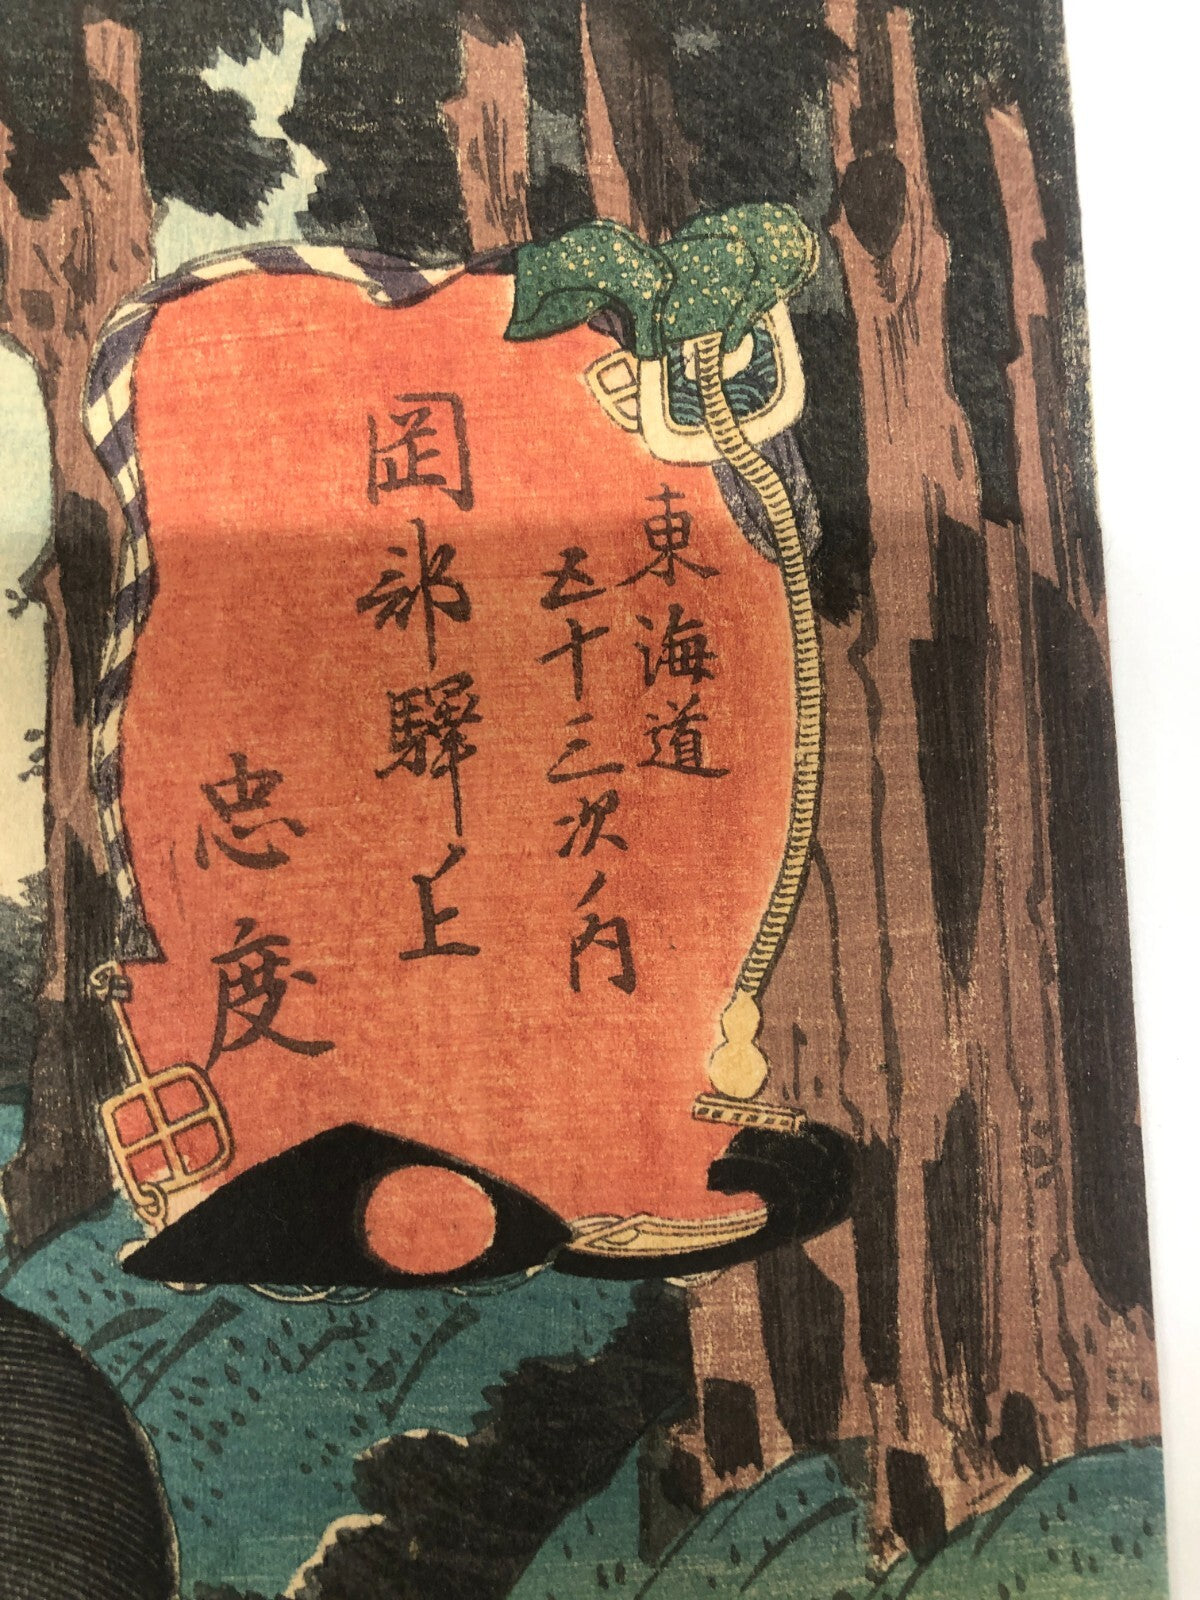 東海道
五十三次ノ内
岡部驛ノ上
忠度